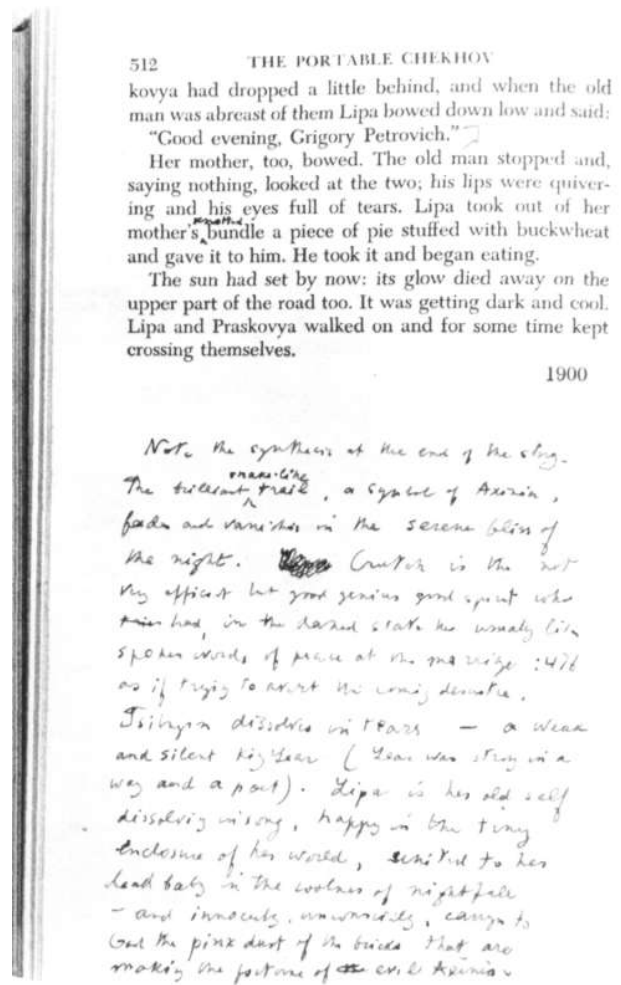 512 THE PORTABLE CHEKHOV
kovya had dropped a little behind, and when the old
man was abreast of them Lipa bowed down low and said:
"Good evening, Grigory Petrovich."
Her mother, too, bowed. The old man stopped and,
saying nothing, looked at the two; his lips were quiver-
ing and his eyes full of tears. Lipa took out of her
mother's bundle a piece of pie stuffed with buckwheat
and gave it to him. He took it and began eating.
The sun had set by now: its glow died away on the
upper part of the road too. It was getting dark and cool.
Lipa and Praskovya walked on and for some time kept
crossing themselves.
1900
Note the synthesis at the end of the story.
The brilliant snake-like trail, a symbol of Axinia,
fades and vanishes in the serene bliss of
the night. Crutch is the not
very efficient but good genius good spirit who
had, in the state he usually lives
spoken words of peace at the marriage :476
as if trying to avert the coming disaster.
dissolves in tears — a weak
and silent King Lear (Lear was strong in a
way and a poet). Lipa is her old self
dissolving in song, happy in the tiny
enclosure of her world, united to her
dead baby in the coolness of nightfall
— and innocently, unconsciously, carrying to
God the pink dust of the bricks that are
making the fortune of evil Axinia.